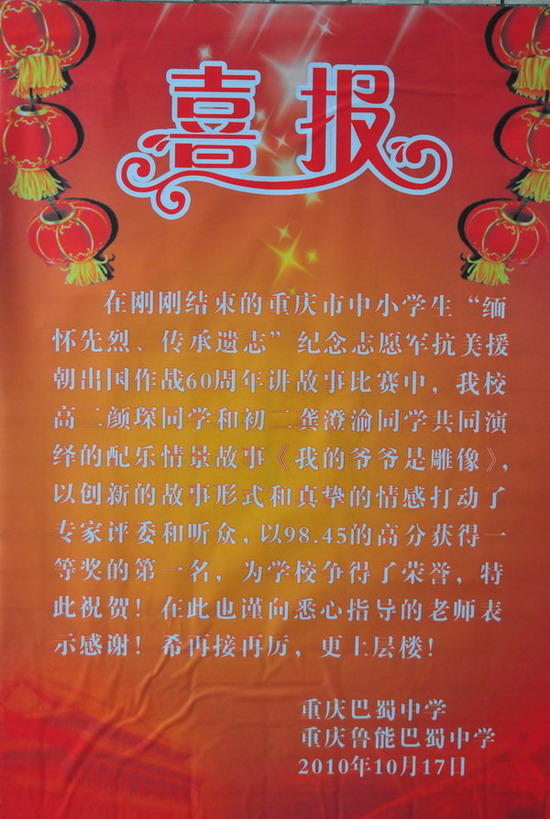 喜报
在刚刚结束的重庆市中小学生“缅
怀先烈、传承遗志”纪念志愿军抗美援
朝出国作战60周年讲故事比赛中，我校
高二颜琛同学和初二龚澄渝同学共同演
绎的配乐情景故事《我的爷爷是雕像》，
以创新的故事形式和真挚的情感打动了
专家评委和听众，以98.45的高分获得一
等奖的第一名，为学校争得了荣誉，特
此祝贺！在此也谨向悉心指导的老师表
示感谢！希再接再厉，更上层楼！
重庆巴蜀中学
重庆鲁能巴蜀中学
2010年10月17日